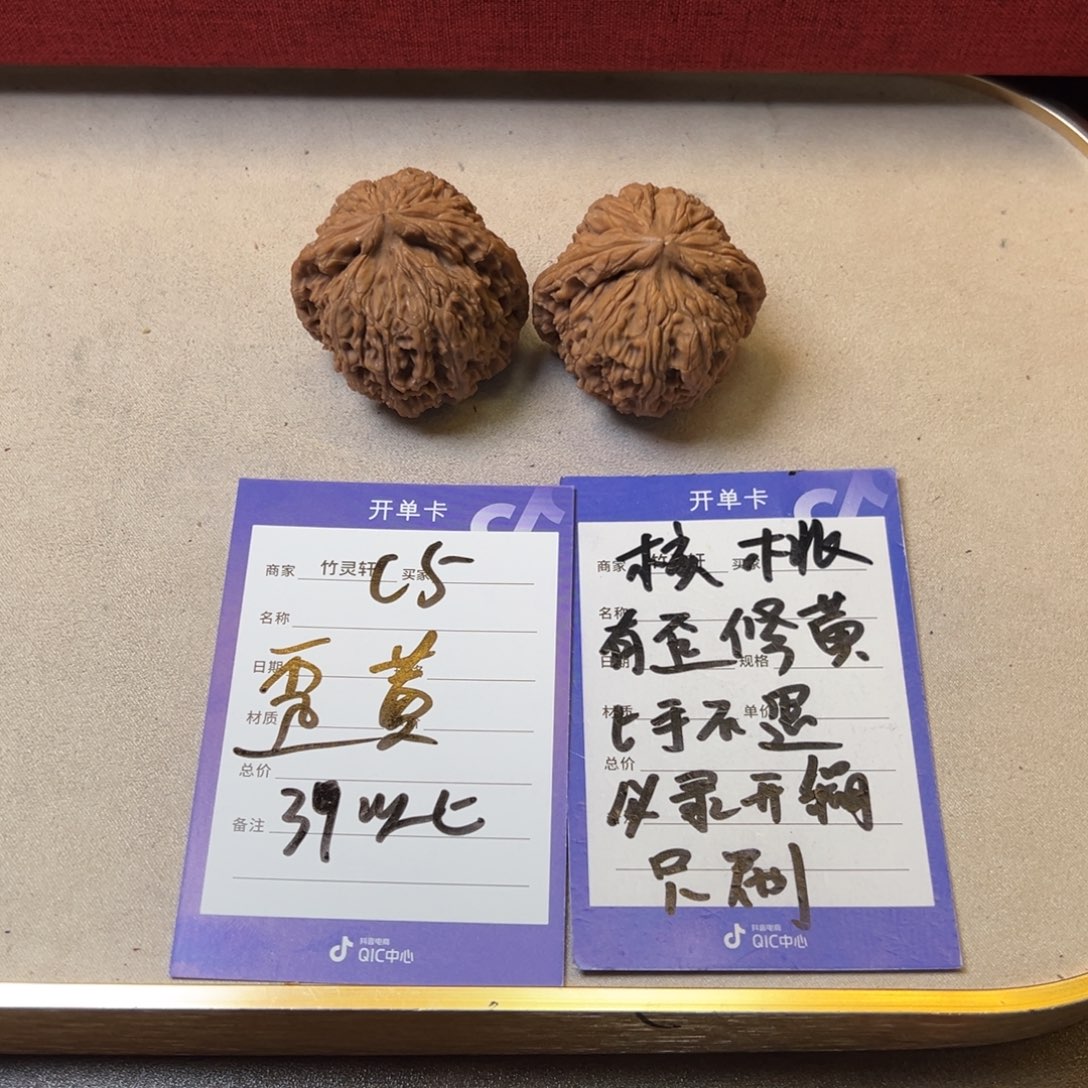 开单卡
商家 竹灵轩 买家
C5
名称
日期
黄
材质
总价
39以上
备注
抖音电商
QIC中心
开单卡
商家 买家
核桃
名称
有歪修黄
日期 规格
材质 单价
上手不退
总价
抖音电商
QIC中心